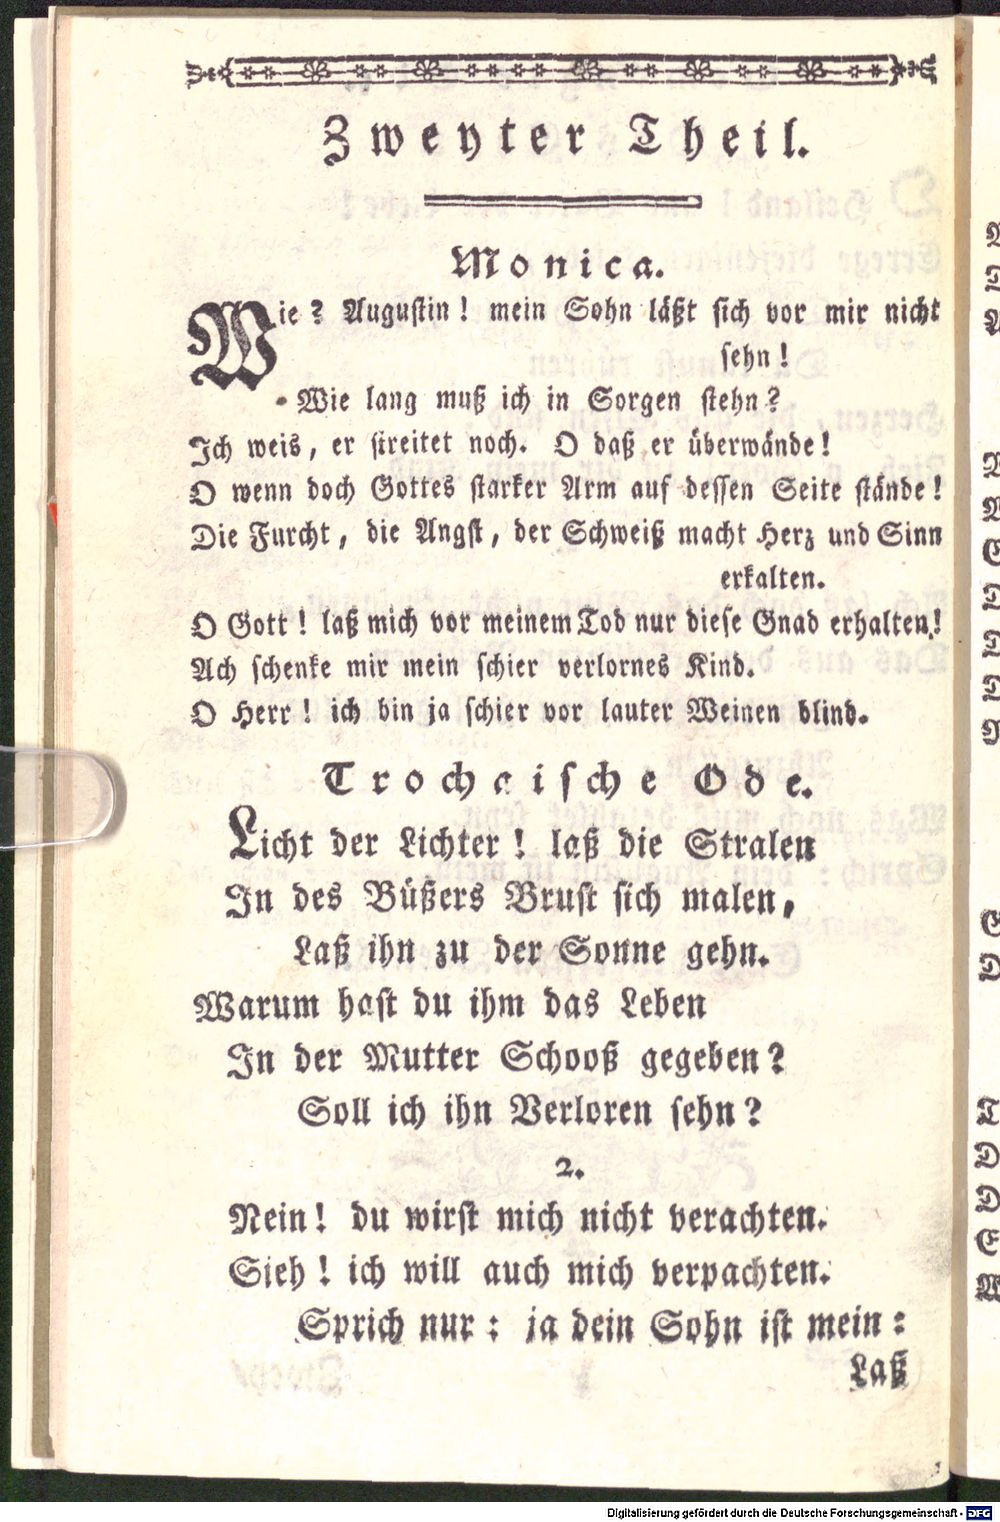 Zweyter Theil.
Monica.
Wie? Augustin! mein Sohn läßt sich vor mir nicht
sehn!
Wie lang muß ich in Sorgen stehn?
Ich weis, er streitet noch. O daß er überwände!
O wenn doch Gottes starker Arm auf dessen Seite stände!
Die Furcht, die Angst, der Schweiß macht Herz und Sinn
erkalten.
O Gott! laß mich vor meinem Tod nur diese Gnad erhalten!
Ach schenke mir mein schier verlornes Kind.
O Herr! ich bin ja schier vor lauter Weinen blind.
Trochaische Ode.
Licht der Lichter! laß die Stralen
In des Büßers Brust sich malen,
Laß ihn zu der Sonne gehn.
Warum hast du ihm das Leben
In der Mutter Schooß gegeben?
Soll ich ihn Verloren sehn?
2.
Nein! du wirst mich nicht verachten.
Sieh! ich will auch mich verpachten.
Sprich nur: ja dein Sohn ist mein:
Laß
Digitalisierung gefördert durch die Deutsche Forschungsgemeinschaft - DFG